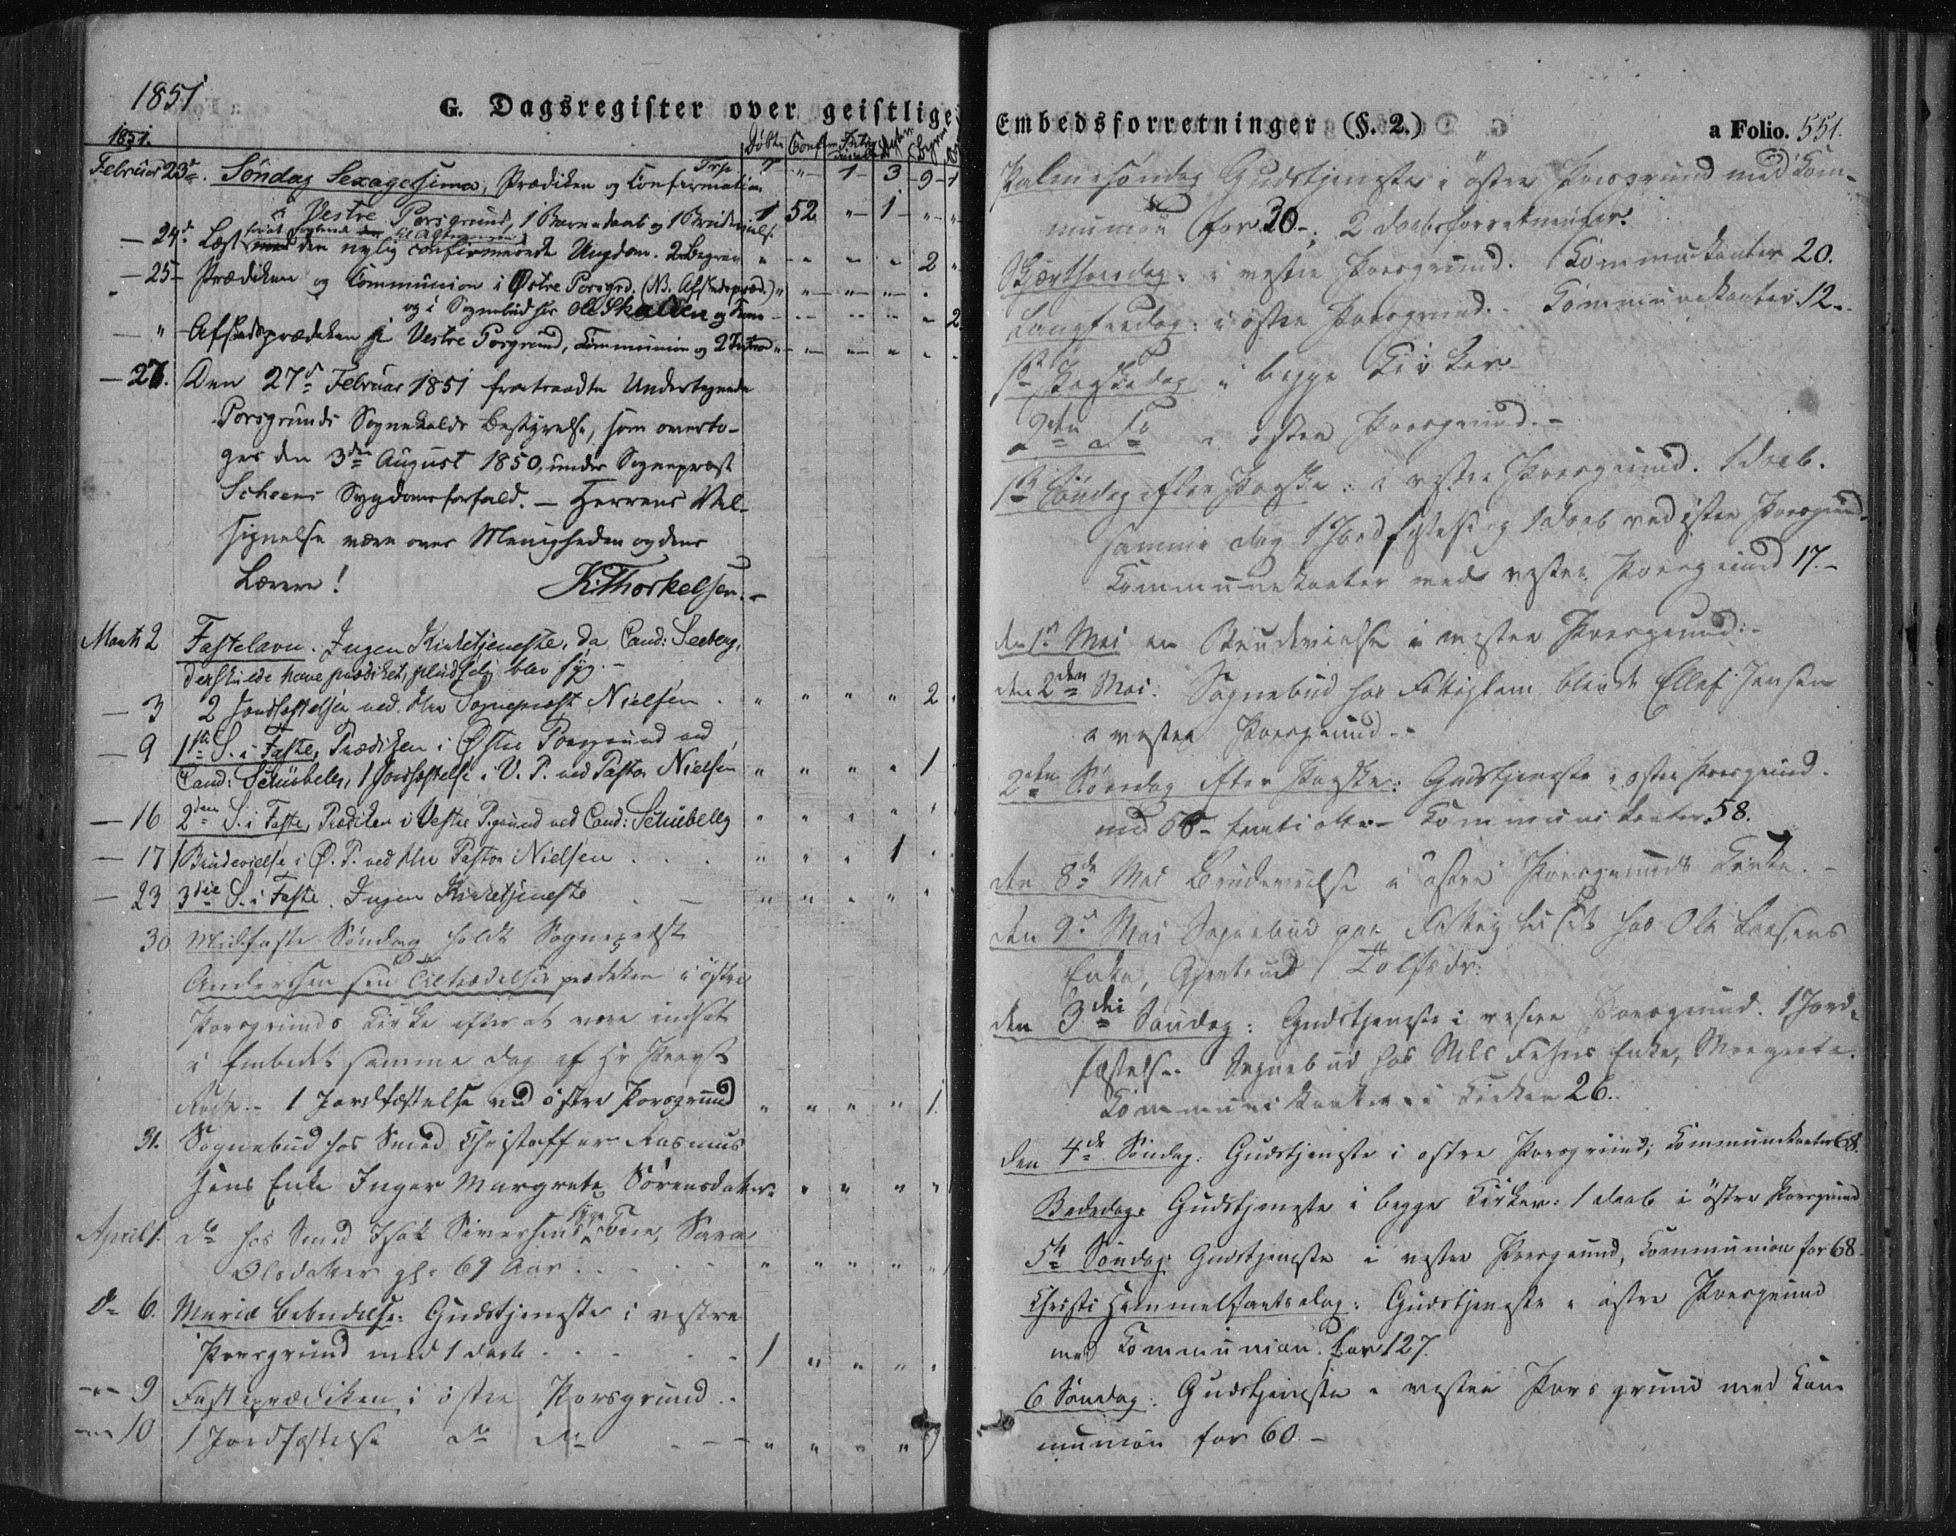 1851
G. Dagsregister over geistlige
1851. Døbte Conf.
Februar 23de. Søndag Sexagesima, Prædiken og Confirmation Trsp. 7 " 1 3 9 1
i Vestre Porsgrund, 1 Barnedaab og 1 Brudevielse 1 52 " 1 " "
— 24d. Læst den nylig confirmerede Ungdom. 2 Begrav " " " " 2 "
— 25 — Prædiken og Communion i Østre Porsgrd. (NB. Afskedspræd.)
og i Sognebud hos Ole Skalleen 2
— " — Afskedsprædeken i Vestre Porsgrund, Communion og 2
— 27. Den 27d Februar 1851 fratraadte Undertegnede
Porsgrunds Sognekalds Bestyrelse, som overto-
ges den 3die August 1850, under Sognepræst
Scheens Sygdomsforfald. — Herrens Vel-
signelse være over Menigheden og dens
Lærere! K. Thorkelsen. —
Marts 2 Fastelavn. Ingen Kirketjeneste, da Cand: Seeberg,
der skulde have prædiket, pludselig blev syg. —
— 3 2 Jordfæstelser ved Hr Sognepræst Nielsen . " " " " 2 "
— 9 1ste S. i Faste, Prædiken i Østre Porsgrund ved
Cand: Schübeler, 1 Jordfæstelse i V. P. ved Pastor Nielsen " " " " 1
— 16 2den S. i Faste, Prædiken i Vestre P.grund ved Cand: Schübeler " " " "
— 17 1 Brudevielse i Ø. P. ved Hr Pastor Nielsen . . . " " " 1
— 23 3die S. i Faste. Ingen Kirketjeneste . — " " " "
30 Midfaste Søndag holdt Sognepræst
Andersen sin Tiltrædelses prædeken i østre
Porsgrunds Kirke efter at være indsat
i Embedet samme Dag af Hr Provst
Rode. — 1 Jordfæstelse ved østre Porsgrund " " " " 1
31. Sognebud hos Smed Christoffer Rasmus
sens Enke Inger Margrete Sørensdatter. " " " "
April 1. do hos Smed Isak Siversens syge Kone, Sara
Olsdatter gl. 69 Aar . . . " " " " "
do 6. Mariæ Bebudelse: Gudstjeneste i vestre
Porsgrund med 1 Daab . . . . 1 " " " "
— " — 9 Fasteprædiken i østre Porsgrund. .
— " — 10 1 Jordfæstelse do do " " " " 1
Embedsforretninger (§. 2.) a Folio. 551.
Palmesøndag Gudstjeneste i østre Porsgrund med Com-
munion for 30 —; 2 Daabsforretninger.
Skjærthorsdag: i vestre Porsgrund. Kommunikanter 20.
Langfredag: i østre Porsgrund. Communikanter 12.
1ste Paaskedag i begge Kirker.
2den do i østre Porsgrund. —
1ste Søndag efter Paaske: i vestre Porsgrund. 1 Daab.
Samme dag 1 Jordfæstelse og 1 Daab ved østre Porsgrund.
Communikanter ved vestre Porsgrund 17. —
den 1ste Mai en Brudevielse i vestre Porsgrund. —
den 2den Mai. Sognebud hos Fattiglem blinde Ellef Jensen
i vestre Porsgrund. —
2den Søndag efter Paaske: Gudstjeneste i østre Porsgrund.
med Communikanter 58.
den 8de Mai Brudevielse i østre Porsgrunds Kirke. —
den 9de Mai Sognebud paa Fattighuset hos Ole Larsens
Enke, Gjertrud Tolfsdr.
den 3die Søndag: Gudstjeneste i vestre Porsgrund. 1 Jord-
fæstelse. Sognebud hos Nils Enke, Margrete.
Communikanter i Kirken 26.
den 4de Søndag. Gudstjeneste i østre Porsgrund; Communikanter 68.
Bededag: Gudstjeneste i begge Kirker. 1 Daab i østre Porsgrund
5te Søndag: Gudstjeneste i vestre Porsgrund, Communion for 68.
Christi Himmelfartsdag: Gudstjeneste i østre Porsgrund
med Communion for 127.
6 Søndag: Gudstjeneste i vestre Porsgrund med Com-
munion for 60. —